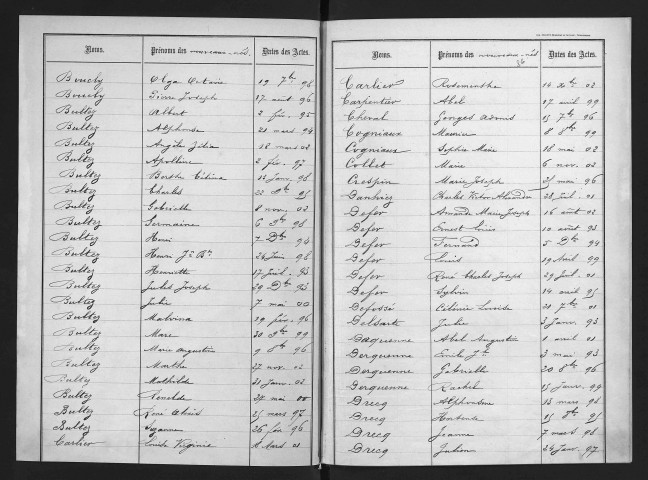 Noms. Prénoms des nouveaux-nés. Dates des Actes.
Bouchy Olga Octavie 19 7bre 98
Bouchy Pierre Joseph 17 août 96
Bultez Albert 2 fév. 95
Bultez Alphonse 21 mars 94
Bultez Angèle Julia 18 mars 02
Bultez Apolline 2 fév. 97
Bultez Berthe Célina 12 Janv. 98
Bultez Charles 22 95
Bultez Gabrielle 8 nov. 02
Bultez Germaine 6 98
Bultez Henri 7 Dbre 94
Bultez Henri Jn Bte 24 Juin 98
Bultez Henriette 17 Juil. 93
Bultez Jules Joseph 29 Dbre 93
Bultez Julia 7 mai 00
Bultez Malvina 19 fév. 96
Bultez Marie 30 99
Bultez Marie Augustine 9 8bre 96
Bultez Marthe 27 nov. 02
Bultez Mathilde 21 Janv. 02
Bultez 24 mai 00
Bultez René Clovis 25 mars 97
Bultez Suzanne 26 fév. 96
Carlier Emile Virginie Mars 01
Noms. Prénoms des nouveaux-nés Dates des Actes.
Carlier Rosemonthe 14 02
Carpentier Abel 17 avril 99
Cheval Georges 15 7bre 96
Cogniaux Maurice 8 8bre 99
Cogniaux Sophie Marie 18 mai 02
Collet Marie 6 nov. 02
Crespin Marie Joseph 25 mai 96
Charles Victor 28 Juil. 01
Defer Armande Marie Joseph 16 août 02
Defer Ernest Louis 10 août 93
Defer Fernand 5 Dbre 94
Defer Louis 19 Avril 99
Defer René Charles Joseph 29 Juil. 01
Defer Sylvin 14 avril 95
Defossé Célénie Louise 21 7bre 01
Delsarte Julie 3 Janv. 93
Derquenne Abel Augustin 1 avril 01
Derquenne Emile Jh 3 mai 93
Derquenne Gabrielle 20 8bre 96
Derquenne Rachel 15 Janv. 99
Drecq Alphonsine 13 mars 96
Drecq Hortense 15 8bre 95
Drecq Jeanne 7 mars 98
Drecq Julien 24 Janv. 97